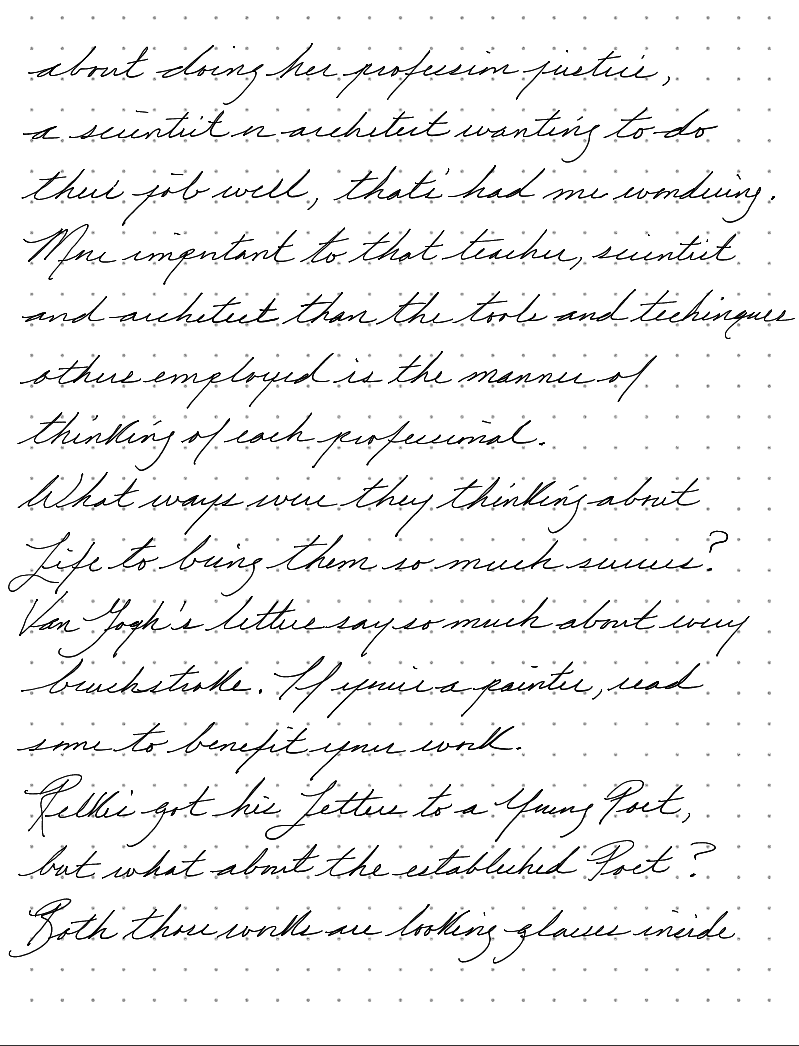 about doing her profession justice,
a scientist or architect wanting to do
their job well, that's had me wondering.
More important to that teacher, scientist
and architect than the tools and techinques
others employed is the manner of
thinking of each professional.
What ways were they thinking about
Life to bring them so much success?
Van Gogh's letters say so much about every
brushstroke. If you're a painter, read
some to benefit your work.
Rilke's got his Letters to a Young Poet,
but what about the established Poet?
Both those works are looking glasses inside